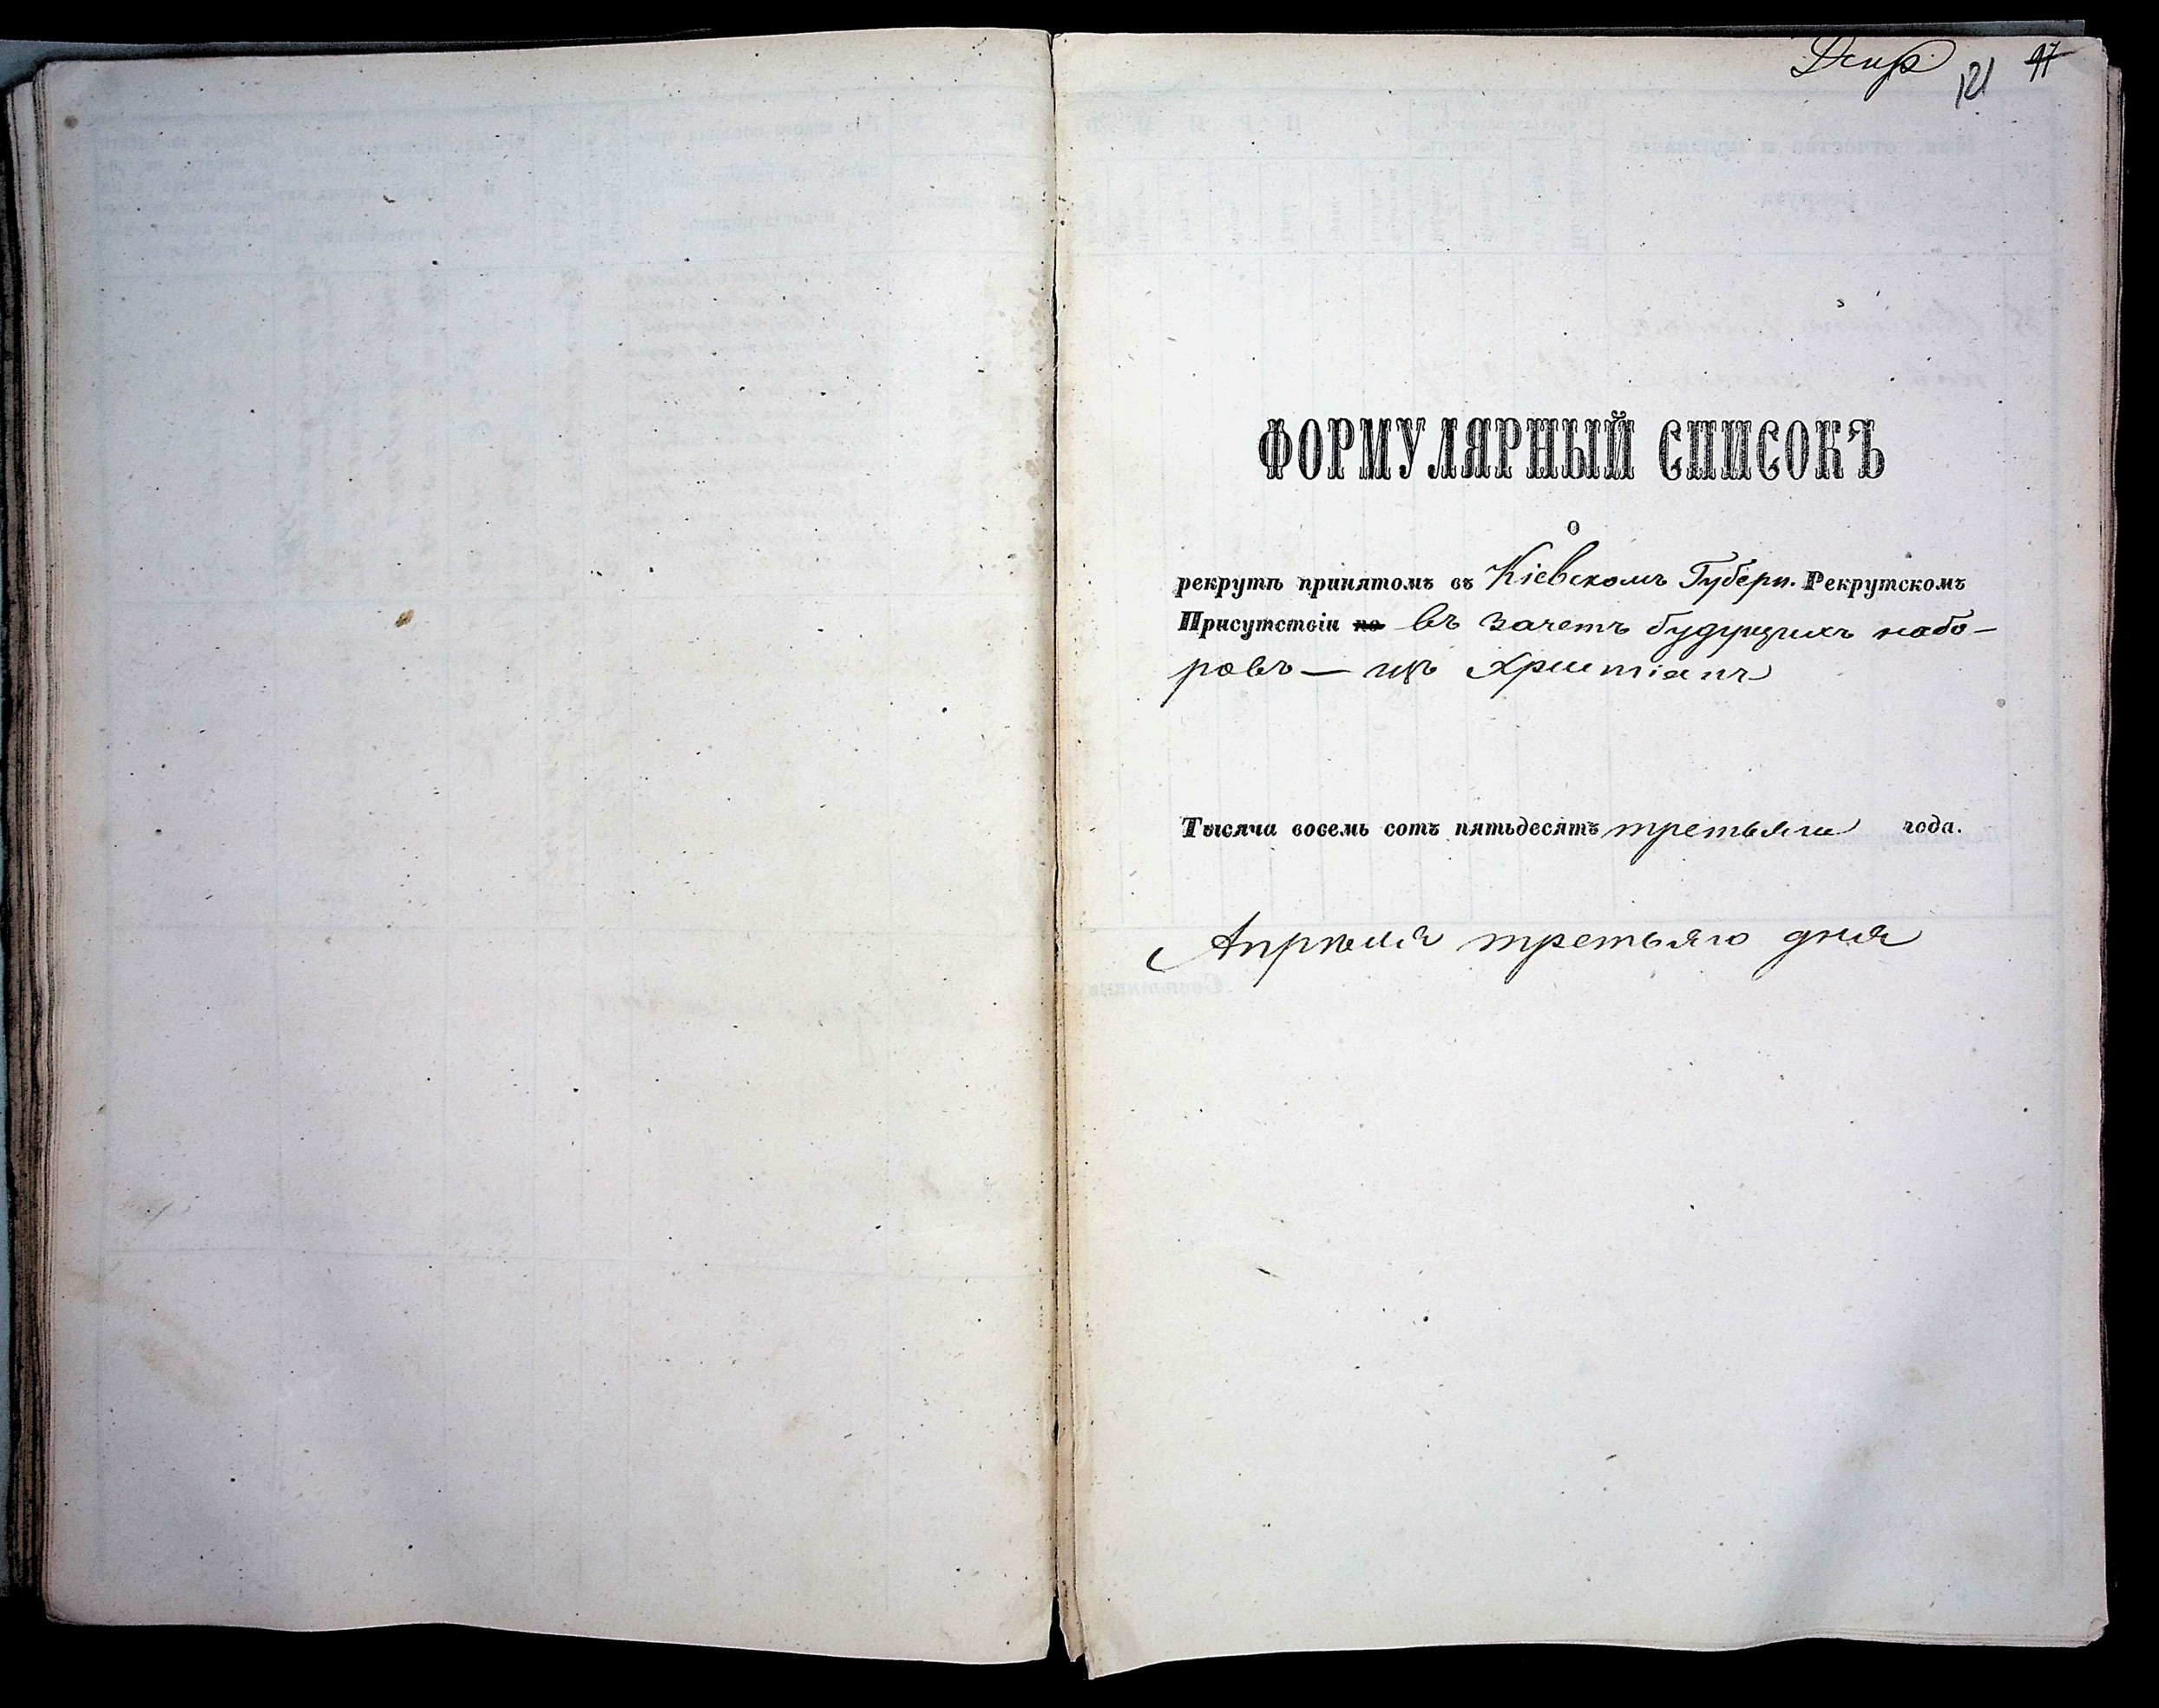 121 97
ФОРМУЛЯРНЫЙ СПИСОКЪ
о
рекрутѣ принятомъ въ Кіевскомъ Губерн. Рекрутскомъ
Присутствіи по въ зачетъ будущихъ набо-
ровъ — изъ Христіанъ
Тысяча восемь сотъ пятьдесятъ третьяго года.
Апрѣля третьяго дня